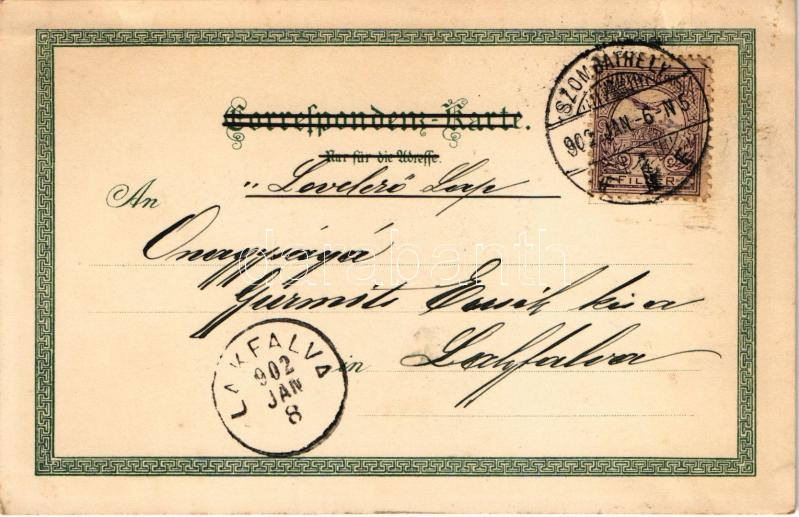 Correspondenz-Karte.
Nur für die Adresse.
„Levelező Lap
An
Önagysága
Emil kisa
in Lakfalva
SZOMBATHELY
902 JAN -6-N5
FILLÉR
LAKFALVA
902
JAN
8
darabanth